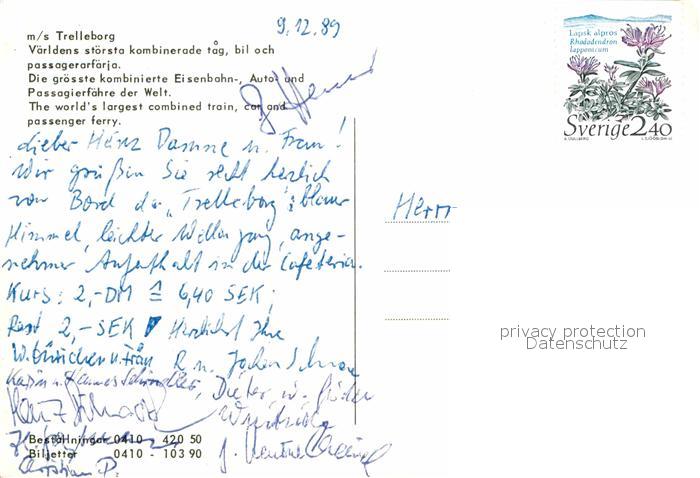 9.12.89
m/s Trelleborg
Världens största kombinerade tåg, bil och
passagerarfärja.
Die grösste kombinierte Eisenbahn-, Auto- und
Passagierfähre der Welt.
The world's largest combined train, car and
passenger ferry.
Lapsk alpros
Rhododendron
lapponicum
Sverige 2.40
dieber Heinz Damme u. Frau!
Wir grüßen Sie recht herzlich
von Bord der "Trelleborg": blauer
Himmel, leichter Wellengang, ange-
nehmer Aufenthalt in der Cafeteria.
Kurs: 2,-DM ≙ 6,40 SEK;
Rest 2,-SEK Herzlichst Ihre
u. Frau
Karin u. Hannes
Dieter
Christian P.
Herrn
privacy protection
Datenschutz
Beställningar 0410 - 420 50
Biljetter 0410 - 103 90